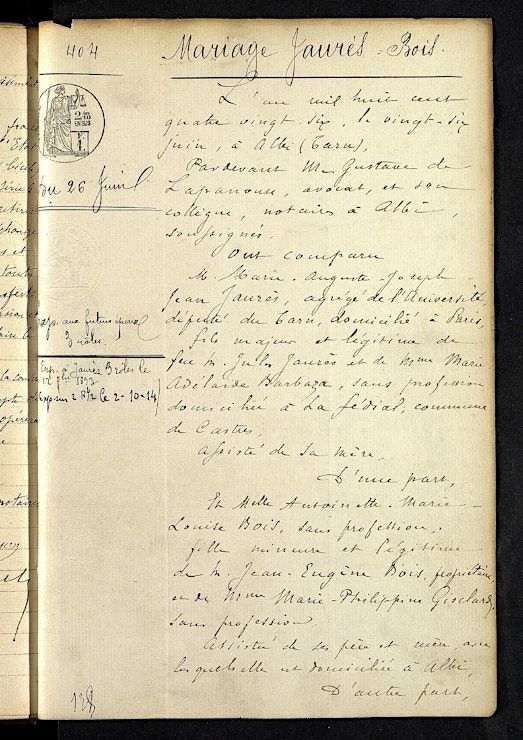 404
Mariage Jaurés = Bois.
L'an mil huit cent
quatre vingt-six, le vingt-six
juin, à Albi (Tarn),
Pardevant Me Gustave de
Lapanouse, avocat, et son
collègue, notaires à Albi,
soussignés.
Ont comparu
M. Marie-Auguste-Joseph
Jean Jaurès, agrégé de l'Université,
député du Tarn, domicilié à Paris,
fils majeur et légitime de
feu M. Jules Jaurès et de Mme Marie
Adélaïde Barbaza, sans profession
domiciliée à La fédial, commune
de Castres,
Assisté de sa mère.
D'une part,
Et Melle Antoinette-Marie-
Louise Bois, sans profession,
fille mineure et légitime
de M. Jean-Eugène Bois, propriétaire,
et de Mme Marie-Philippine Gisclard,
sans profession
Assistée de ses père et mère, avec
lesquels elle est domiciliée à Albi,
D'autre part,
du 26 Juin
aux futurs
3 rôles.
Exp. à Jaurès 3 roles le
1893
le 2-10-14